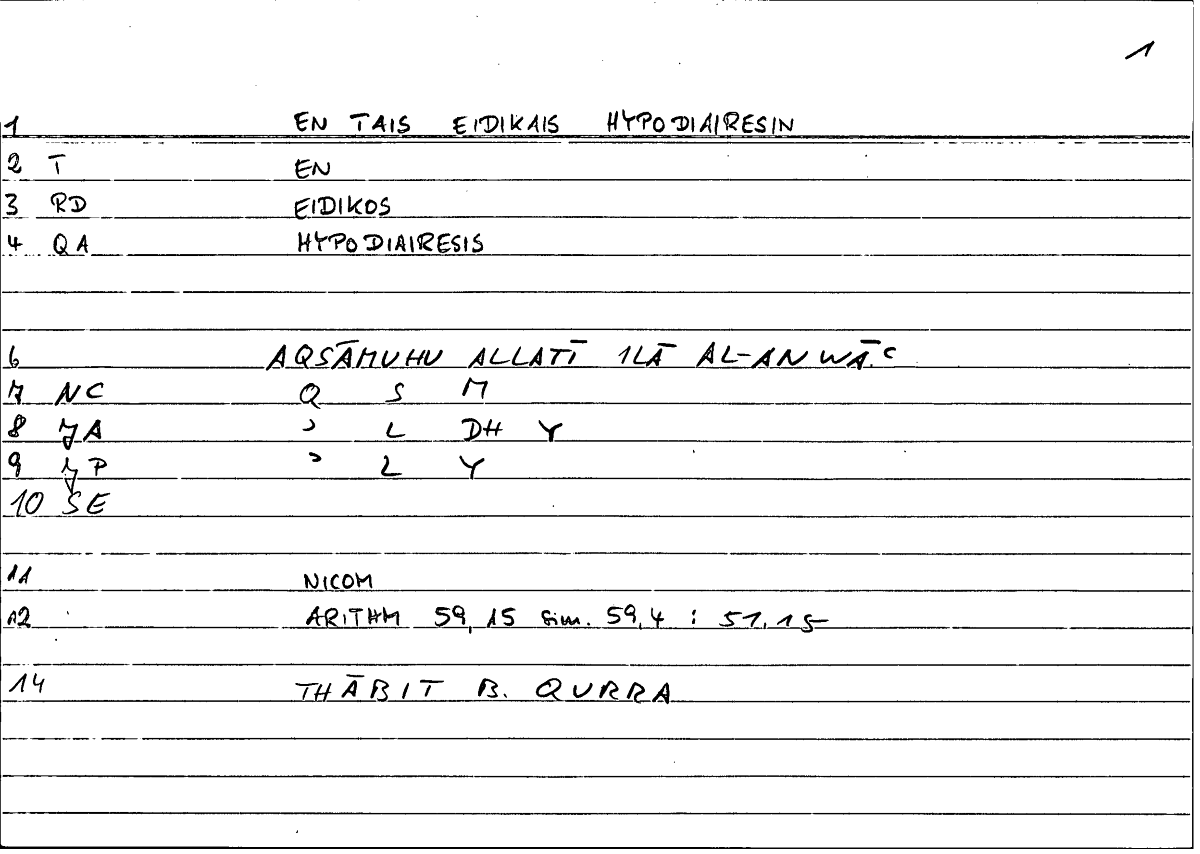 1
1 EN TAIS EIDIKAIS HYPODIAIRESIN
2 T EN
3 RD EIDIKOS
4 QA HYPODIAIRESIS
6 AQSĀMUHU ALLATĪ ILĀ AL-ANWĀC
7 NC Q S M
8 JA ʾ L DH Y
9 JP ʾ L Y
10 ŠE
11 NICOM
12 ARITHM 59,15 sim. 59,4 : 51.15
14 THĀBIT B. QURRA